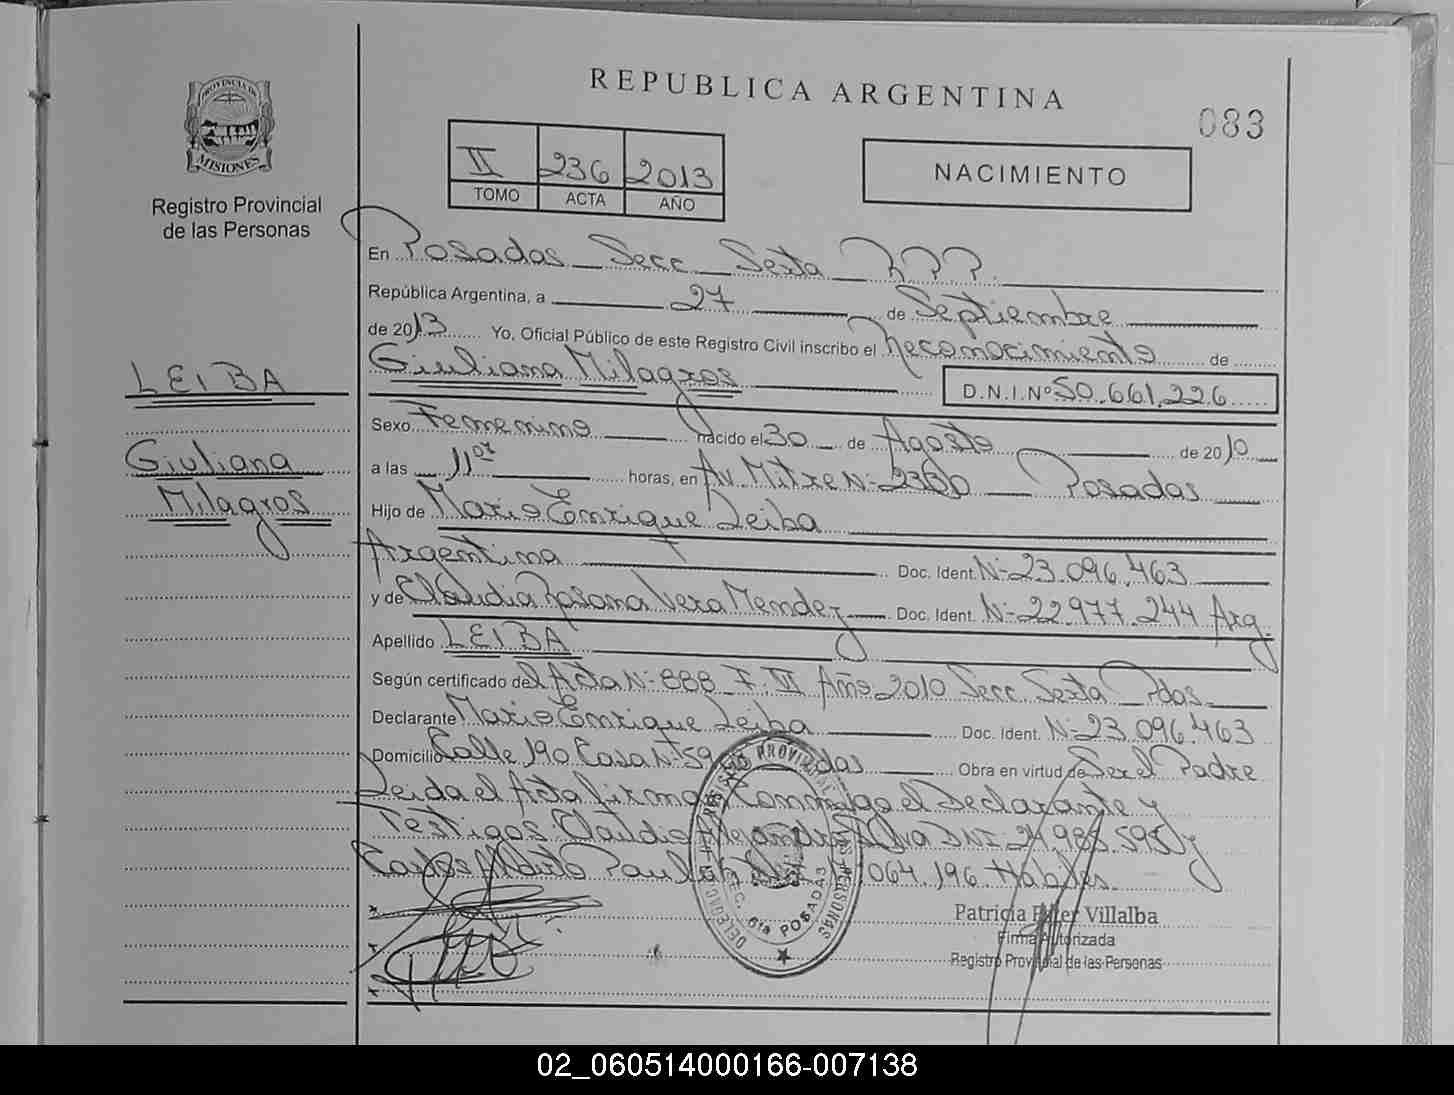 REPUBLICA ARGENTINA
083
PROVINCIA DE
MISIONES
Registro Provincial
de las Personas
II 236 2013
TOMO ACTA AÑO
NACIMIENTO
En Posadas Secc Sexta
República Argentina, a 27 de Septiembre
de 2013 Yo, Oficial Público de este Registro Civil inscribo el Reconocimiento de
Giuliana Milagros D.N.I.Nº 50.661.226
LEIBA
Giuliana
Milagros
Sexo Femenino nacido el 30 de Agosto de 2010
a las 11 07 horas, en Av. Mitre Nº 2360 Posadas
Hijo de Mario Enrique Leiba
Argentina Doc. Ident. Nº 23.096.463
y de Claudia Rosana Vera Mendez Doc. Ident. Nº 22.977.244 Arg.
Apellido LEIBA
Según certificado del Acta Nº 888 T. III Año 2010 Secc Sexta Pdas
Declarante Mario Enrique Leiba Doc. Ident. Nº 23.096.463
Domicilio Calle 190 Casa Nº 59 Obra en virtud de Ser el Padre
Leida el Acta firman Conmigo el Declarante y
Testigos: Claudio Alejandro DNI 24.985.595 y
Carlos Alberto 064.196 Habiles.
SEC. 6ta POSADAS
Patricia Villalba
Firma Autorizada
Registro Provincial de las Personas
02_060514000166-007138